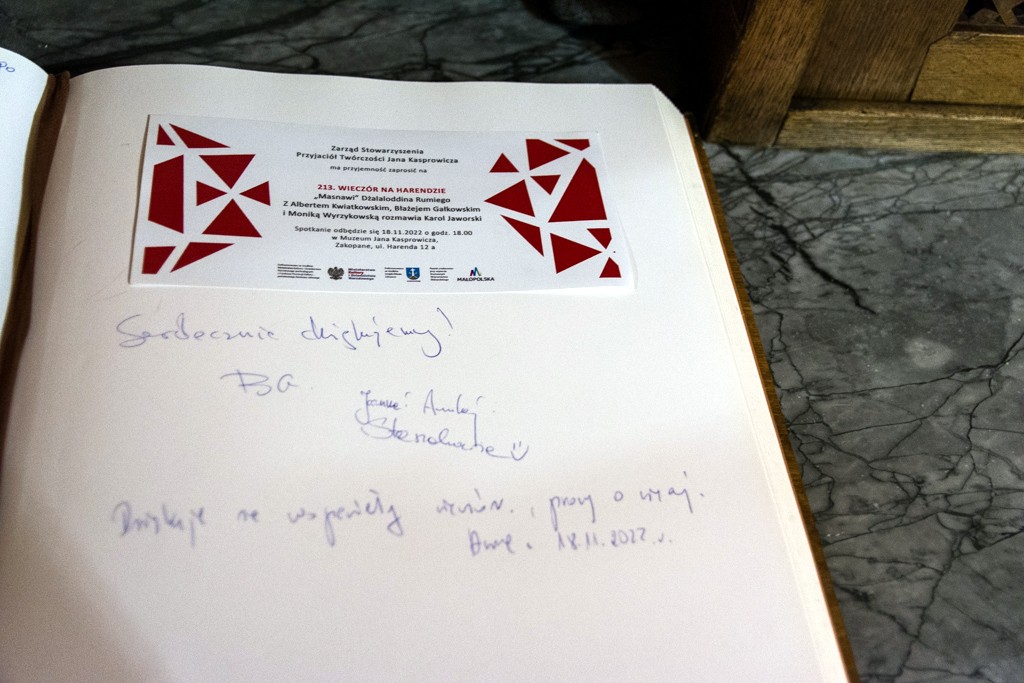 Zarząd Stowarzyszenia
Przyjaciół Twórczości Jana Kasprowicza
ma przyjemność zaprosić na
213. WIECZÓR NA HARENDZIE
„Masnawi” Dżalaloddina Rumiego
Z Albertem Kwiatkowskim, Błażejem Gałkowskim
i Moniką Wyrzykowską rozmawia Karol Jaworski
Spotkanie odbędzie się 18.11.2022 o godz. 18.00
w Muzeum Jana Kasprowicza,
Zakopane, ul. Harenda 12 a
MAŁOPOLSKA
Serdecznie dziękujemy!
BG.
Dziękuję za wspaniały wieczór., proszę o więcej.
18.11.2022 r.